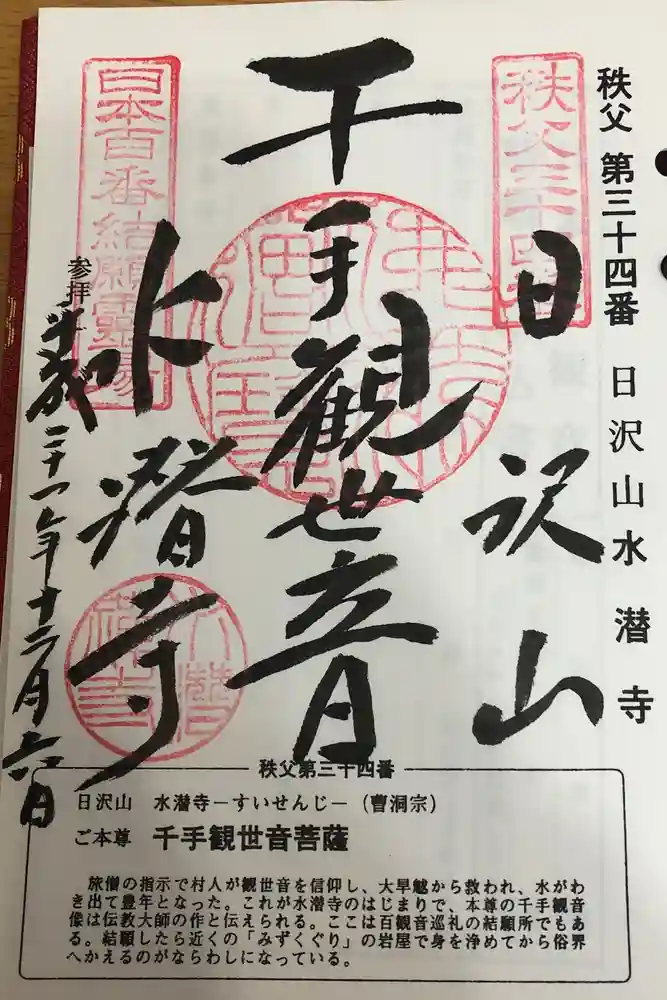 秩父 第三十四番 日沢山水潜寺
秩父三十四番
日沢山
千手観世音
日本百番結願霊場
水潜寺
参拝
平成二十一年十二月六日
秩父第三十四番
日沢山 水潜寺−すいせんじ−（曹洞宗）
ご本尊 千手観世音菩薩
旅僧の指示で村人が観世音を信仰し、大旱魃から救われ、水がわ
き出て豊年となった。これが水潜寺のはじまりで、本尊の千手観音
像は伝教大師の作と伝えられる。ここは百観音巡礼の結願所でもあ
る。結願したら近くの「みずくぐり」の岩屋で身を浄めてから俗界
へかえるのがならわしになっている。